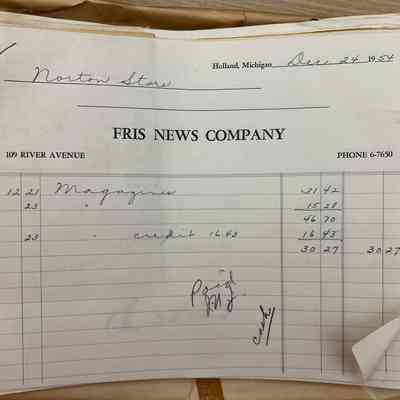 Holland, Michigan Dec 24 1954
Norton Store
FRIS NEWS COMPANY
109 RIVER AVENUE PHONE 6-7650
12 21 Magazines 31 42
23 " 15 28
46 70
23 " credit 16.43 16 43
30 27 30 27
Paid
cash